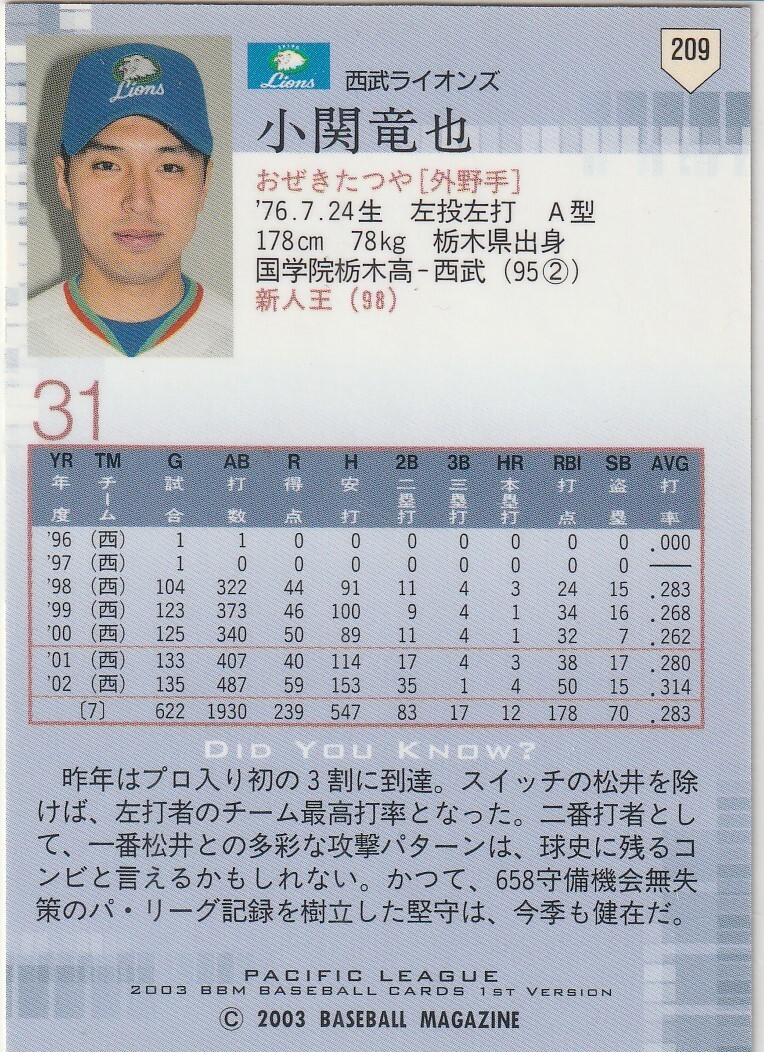 209
Lions
SEIBU
Lions
西武ライオンズ
小関竜也
おぜきたつや[外野手]
'76.7.24生 左投左打 A型
178cm 78kg 栃木県出身
国学院栃木高-西武 (95②)
新人王 (98)
31
YR TM G AB R H 2B 3B HR RBI SB AVG
年度 チーム 試合 打数 得点 安打 二塁打 三塁打 本塁打 打点 盗塁 打率
'96 (西) 1 1 0 0 0 0 0 0 0 .000
'97 (西) 1 0 0 0 0 0 0 0 0 ―
'98 (西) 104 322 44 91 11 4 3 24 15 .283
'99 (西) 123 373 46 100 9 4 1 34 16 .268
'00 (西) 125 340 50 89 11 4 1 32 7 .262
'01 (西) 133 407 40 114 17 4 3 38 17 .280
'02 (西) 135 487 59 153 35 1 4 50 15 .314
[7] 622 1930 239 547 83 17 12 178 70 .283
DID YOU KNOW?
昨年はプロ入り初の3割に到達。スイッチの松井を除
けば、左打者のチーム最高打率となった。二番打者とし
て、一番松井との多彩な攻撃パターンは、球史に残るコ
ンビと言えるかもしれない。かつて、658守備機会無失
策のパ・リーグ記録を樹立した堅守は、今季も健在だ。
PACIFIC LEAGUE
2003 BBM BASEBALL CARDS 1ST VERSION
© 2003 BASEBALL MAGAZINE